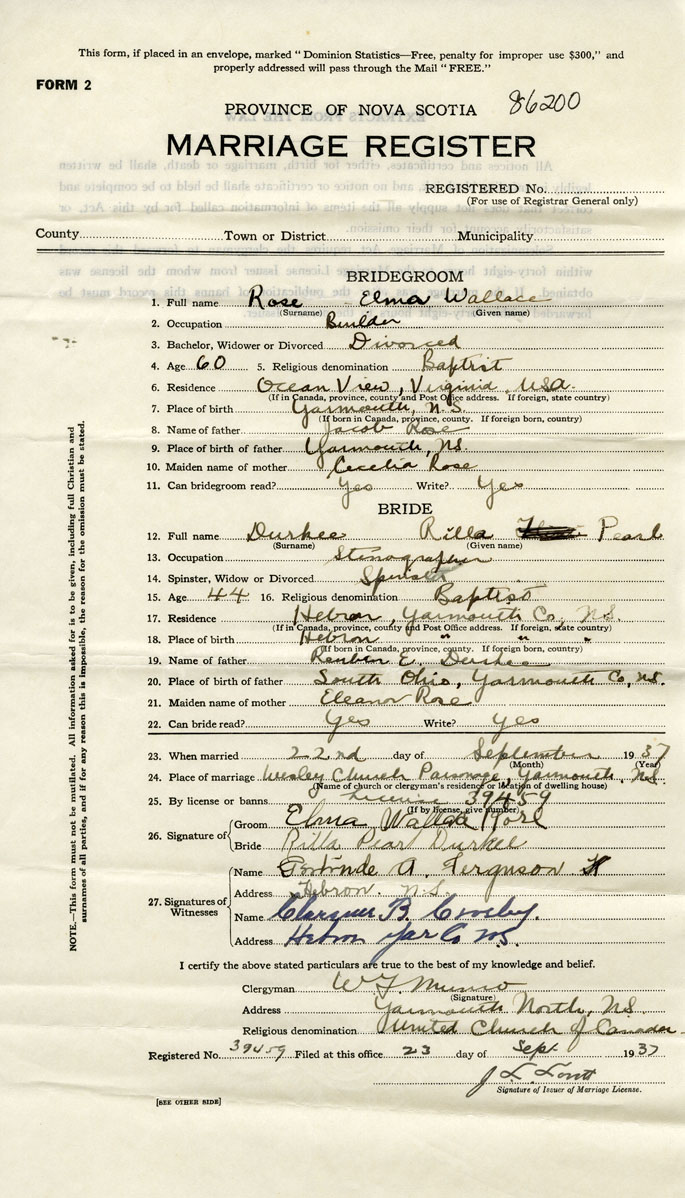 This form, if placed in an envelope, marked "Dominion Statistics—Free, penalty for improper use $300," and
properly addressed will pass through the Mail "FREE."
FORM 2
PROVINCE OF NOVA SCOTIA 86200
MARRIAGE REGISTER
REGISTERED No.
(For use of Registrar General only)
County Town or District Municipality
BRIDEGROOM
1. Full name Rose Elma Wallace
(Surname) (Given name)
2. Occupation Builder
3. Bachelor, Widower or Divorced Divorced
4. Age 60 5. Religious denomination Baptist
6. Residence Ocean View, Virginia, USA.
(If in Canada, province, county and Post Office address. If foreign, state country)
7. Place of birth Yarmouth, N.S.
(If born in Canada, province, county. If foreign born, country)
8. Name of father Jacob Rose
9. Place of birth of father Yarmouth, NS.
10. Maiden name of mother Cecelia Rose
11. Can bridegroom read? Yes Write? Yes
BRIDE
12. Full name Durkee Rilla Pearl
(Surname) (Given name)
13. Occupation Stenographer
14. Spinster, Widow or Divorced Spinster
15. Age 44 16. Religious denomination Baptist
17. Residence Hebron, Yarmouth Co, N.S.
(If in Canada, province, county and Post Office address. If foreign, state country)
18. Place of birth Hebron " " "
(If born in Canada, province, county. If foreign born, country)
19. Name of father Reuben E. Durkee
20. Place of birth of father South Ohio, Yarmouth Co, N.S.
21. Maiden name of mother Eleanor Rose
22. Can bride read? Yes Write? Yes
23. When married 22nd day of September 1937
(Month) (Year)
24. Place of marriage Wesley Church Parsonage, Yarmouth, N.S.
(Name of church or clergyman's residence or location of dwelling house)
25. By license or banns License 39459
(If by license, give number)
26. Signature of
Groom Elma Wallace Rose
Bride Rilla Pearl Durkee
27. Signatures of Witnesses
Name Gertrude A. Ferguson
Address Hebron. N.S.
Name B. Crosby.
Address Hebron Yar Co NS.
I certify the above stated particulars are true to the best of my knowledge and belief.
Clergyman W F Munro
(Signature)
Address Yarmouth North, N.S.
Religious denomination United Church of Canada
Registered No. 39459 Filed at this office 23 day of Sept 1937
Signature of Issuer of Marriage License.
[SEE OTHER SIDE]
NOTE.—This form must not be mutilated. All information asked for is to be given, including full Christian and
surnames of all parties, and if for any reason this is impossible, the reason for the omission must be stated.